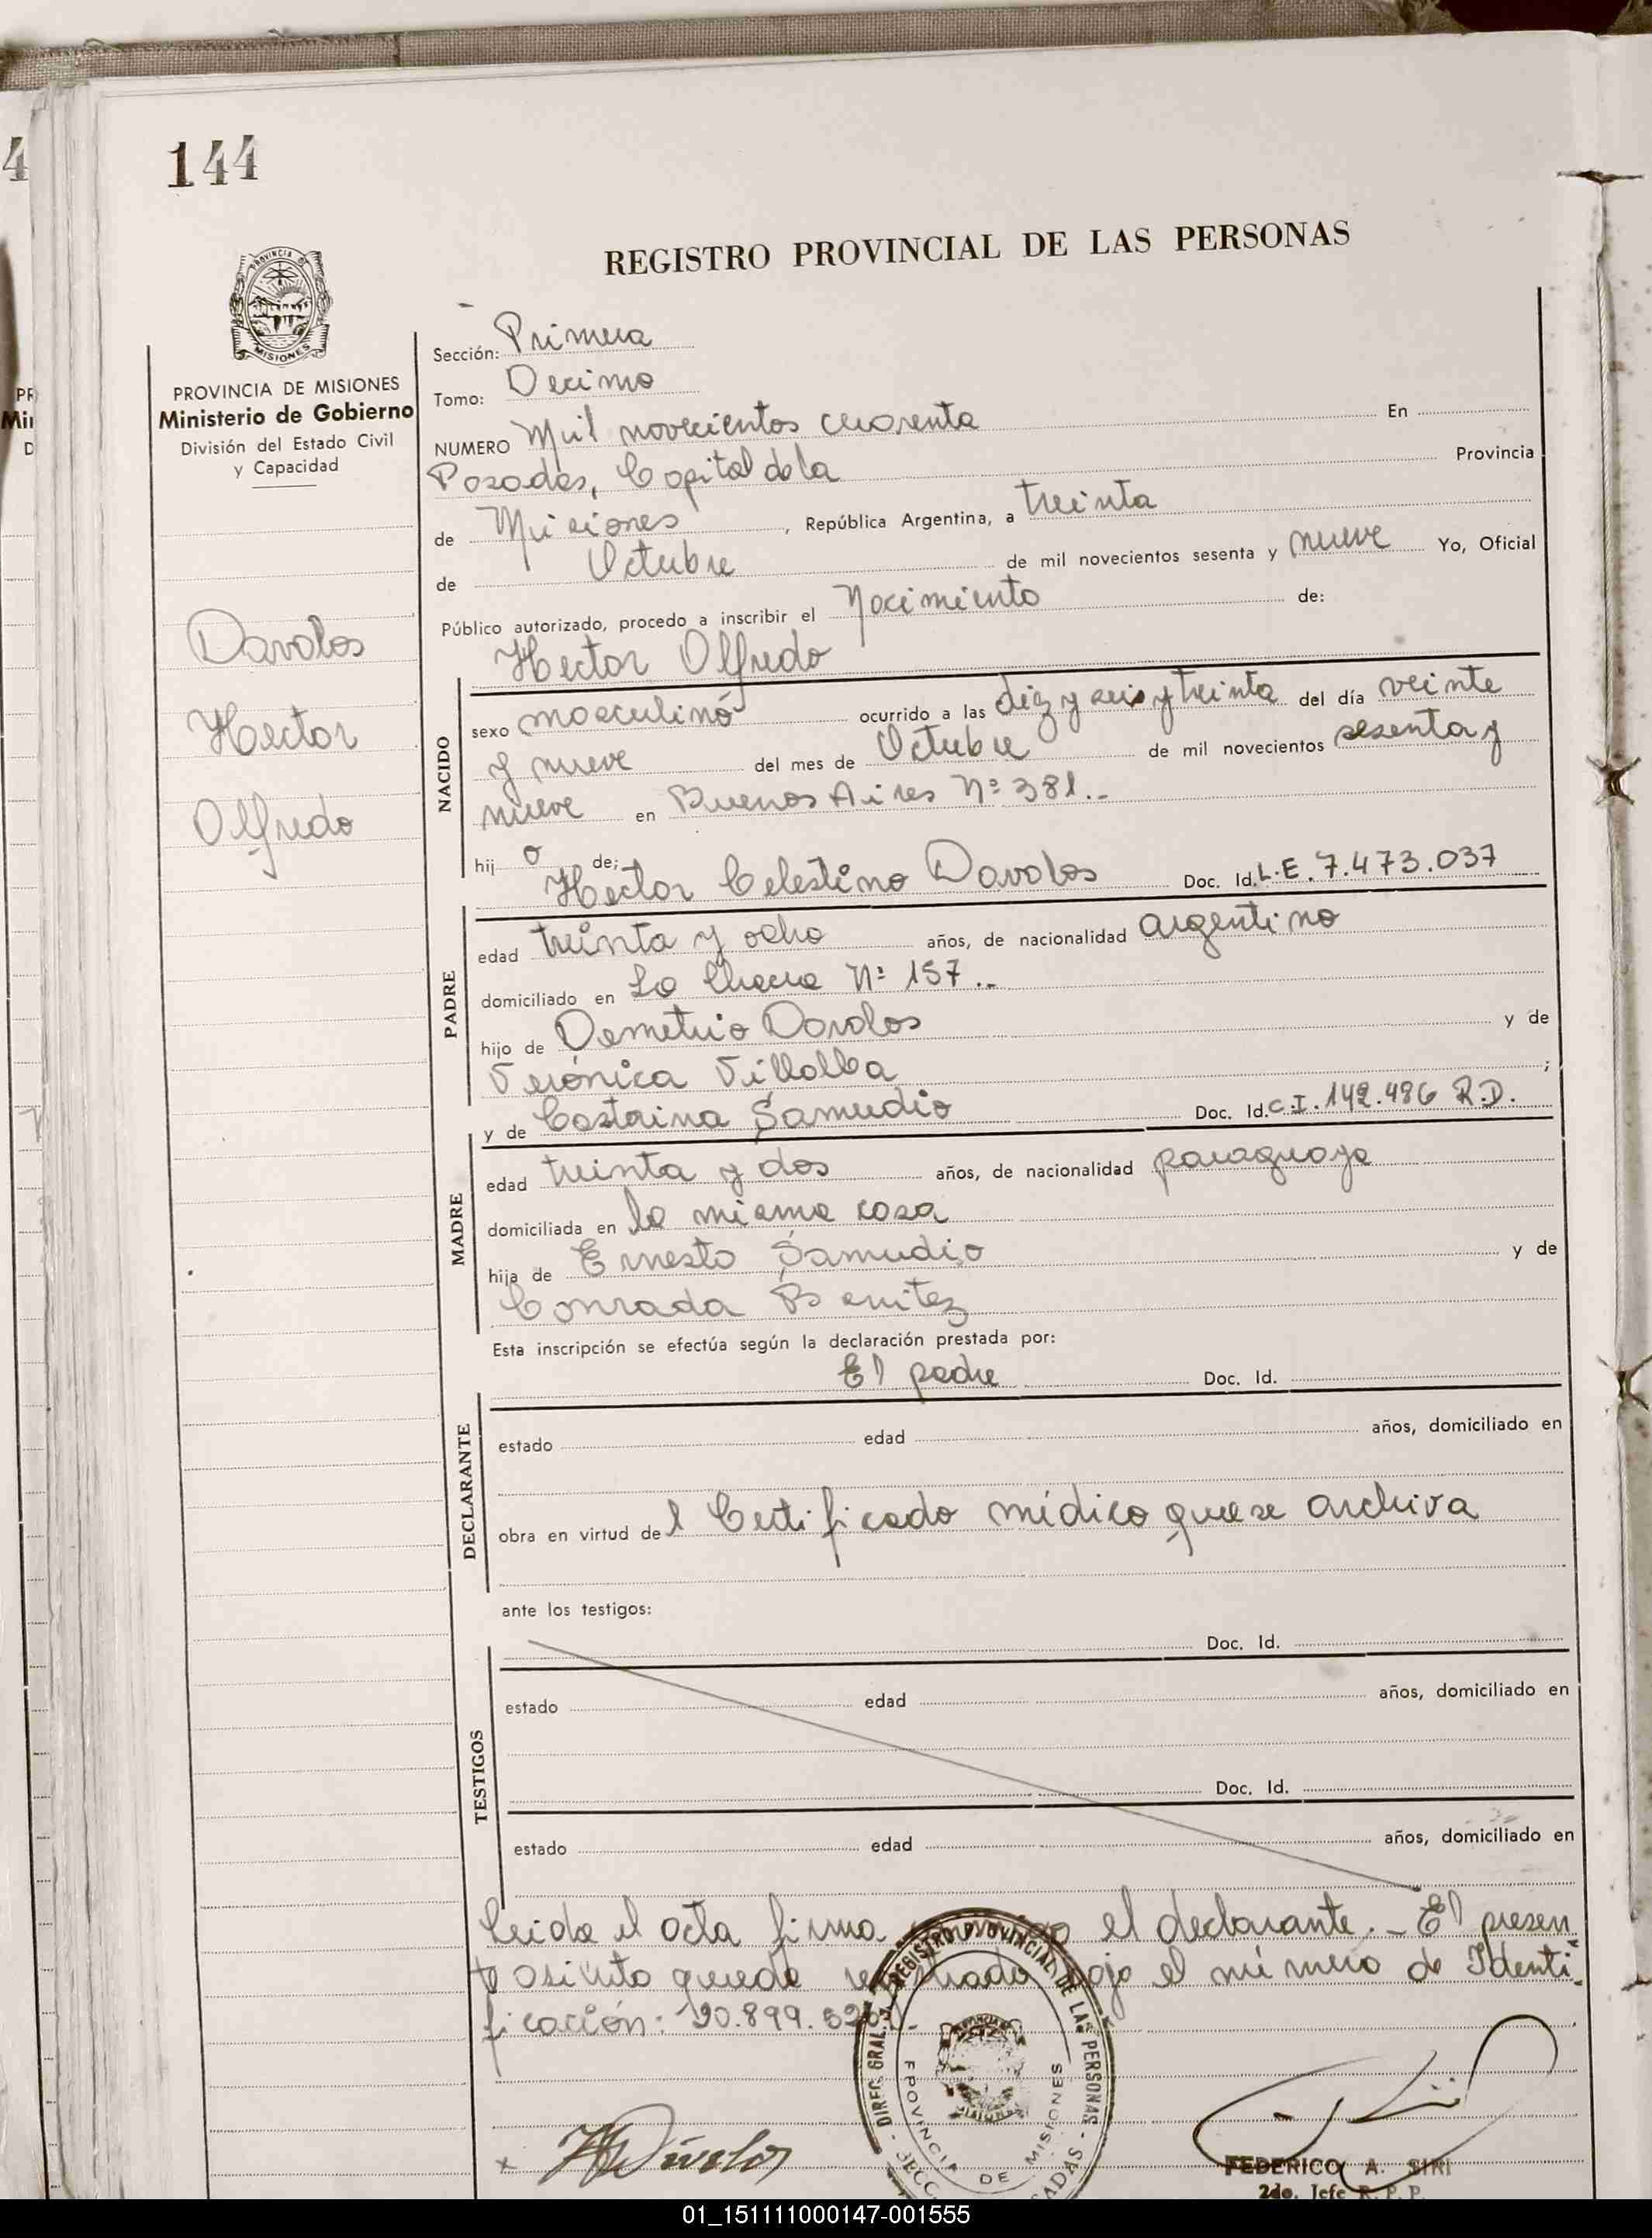 144
REGISTRO PROVINCIAL DE LAS PERSONAS
PROVINCIA DE MISIONES
Ministerio de Gobierno
División del Estado Civil
y Capacidad
Davalos
Hector
Alfredo
Sección: Primera
Tomo: Decimo
NUMERO Mil novecientos cuarenta En
Posadas, Capital de la Provincia
de Misiones, República Argentina, a treinta
de Octubre de mil novecientos sesenta y nueve Yo, Oficial
Público autorizado, procedo a inscribir el Nacimiento de:
Hector Alfredo
NACIDO
sexo masculino ocurrido a las diez y seis y treinta del día veinte
y nueve del mes de Octubre de mil novecientos sesenta y
nueve en Buenos Aires Nº 381.-
hijo de:
Hector Celestino Davalos Doc. Id. L.E. 7.473.037
PADRE
edad treinta y ocho años, de nacionalidad argentino
domiciliado en La Chacra Nº 157.-
hijo de Demetrio Davalos y de
Verónica Villalba ;
y de Castorina Samudio Doc. Id. C.I. 142.486 R.D.
MADRE
edad treinta y dos años, de nacionalidad paraguaya
domiciliada en la misma casa
hija de Ernesto Samudio y de
Conrada Benitez
Esta inscripción se efectúa según la declaración prestada por:
El padre Doc. Id.
DECLARANTE
estado edad años, domiciliado en
obra en virtud del Certificado médico que se archiva
ante los testigos:
Doc. Id.
TESTIGOS
estado edad años, domiciliado en
Doc. Id.
estado edad años, domiciliado en
Leida el acta firma conmigo el declarante.- El presen
te asiento queda registrado bajo el número de Identi
ficación: 20.899.
DIREC. GRAL. REGISTRO PROVINCIAL DE LAS PERSONAS
PROVINCIA DE MISIONES
H Dávalos
FEDERICO A. SIRI
2do. Jefe R. P. P.
01_151111000147-001555